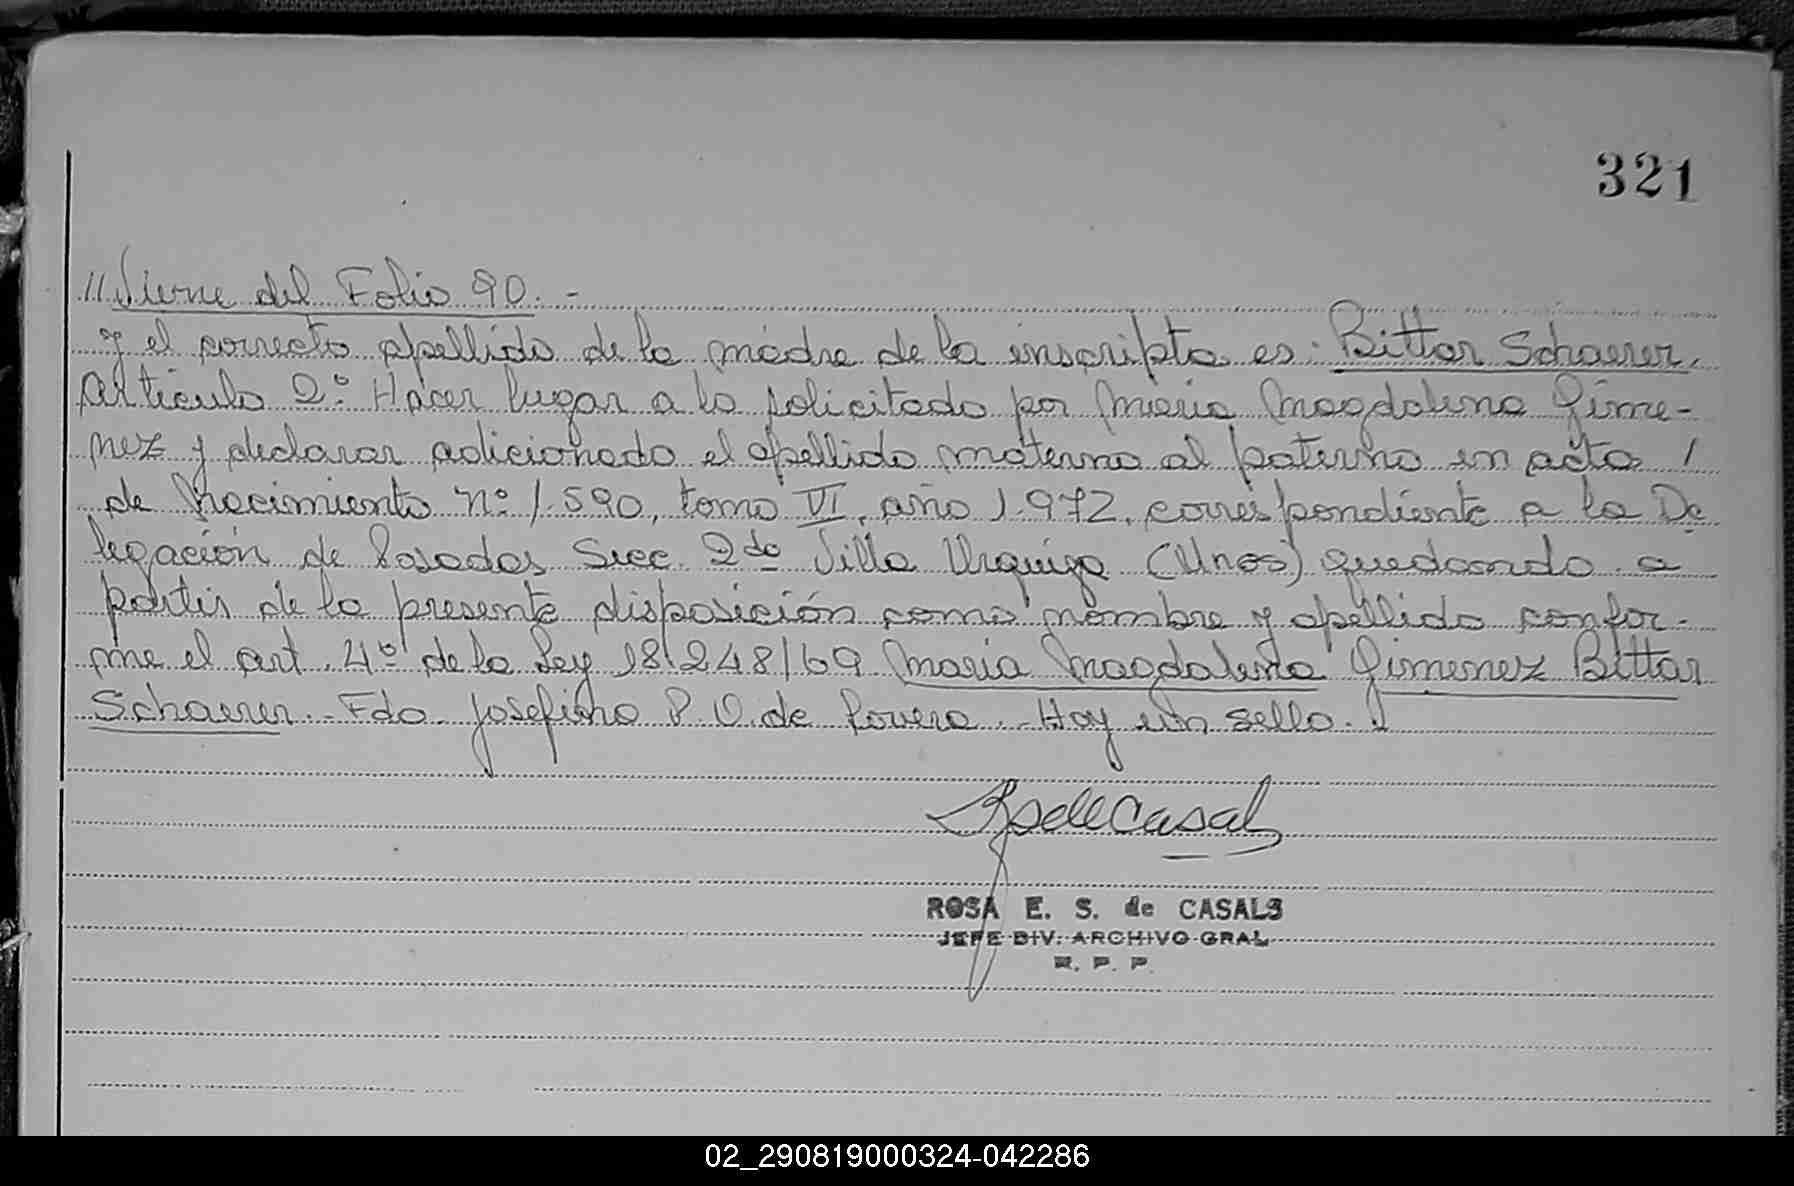 321
// Viene del Folio 90. -
y el correcto apellido de la madre de la inscripta es: Bittar Schaerer.
Artículo 2º: Hacer lugar a lo solicitado por María Magdalena Gime-
nez y declarar adicionado el apellido materno al paterno en acta /
de Nacimiento Nº 1.590, tomo VI, año 1.972, correspondiente a la De
legación de Posadas Secc. 2da Villa Urquiza (Mnes) quedando a
partir de la presente disposición como nombre y apellido confor-
me el art. 4º de la Ley 18.248/69 María Magdalena Gimenez Bittar
Schaerer. - Fdo. Josefina P. O. de Rovera. - Hay un sello. -
ROSA E. S. de CASALS
JEFE DIV. ARCHIVO GRAL
R. P. P.
02_290819000324-042286